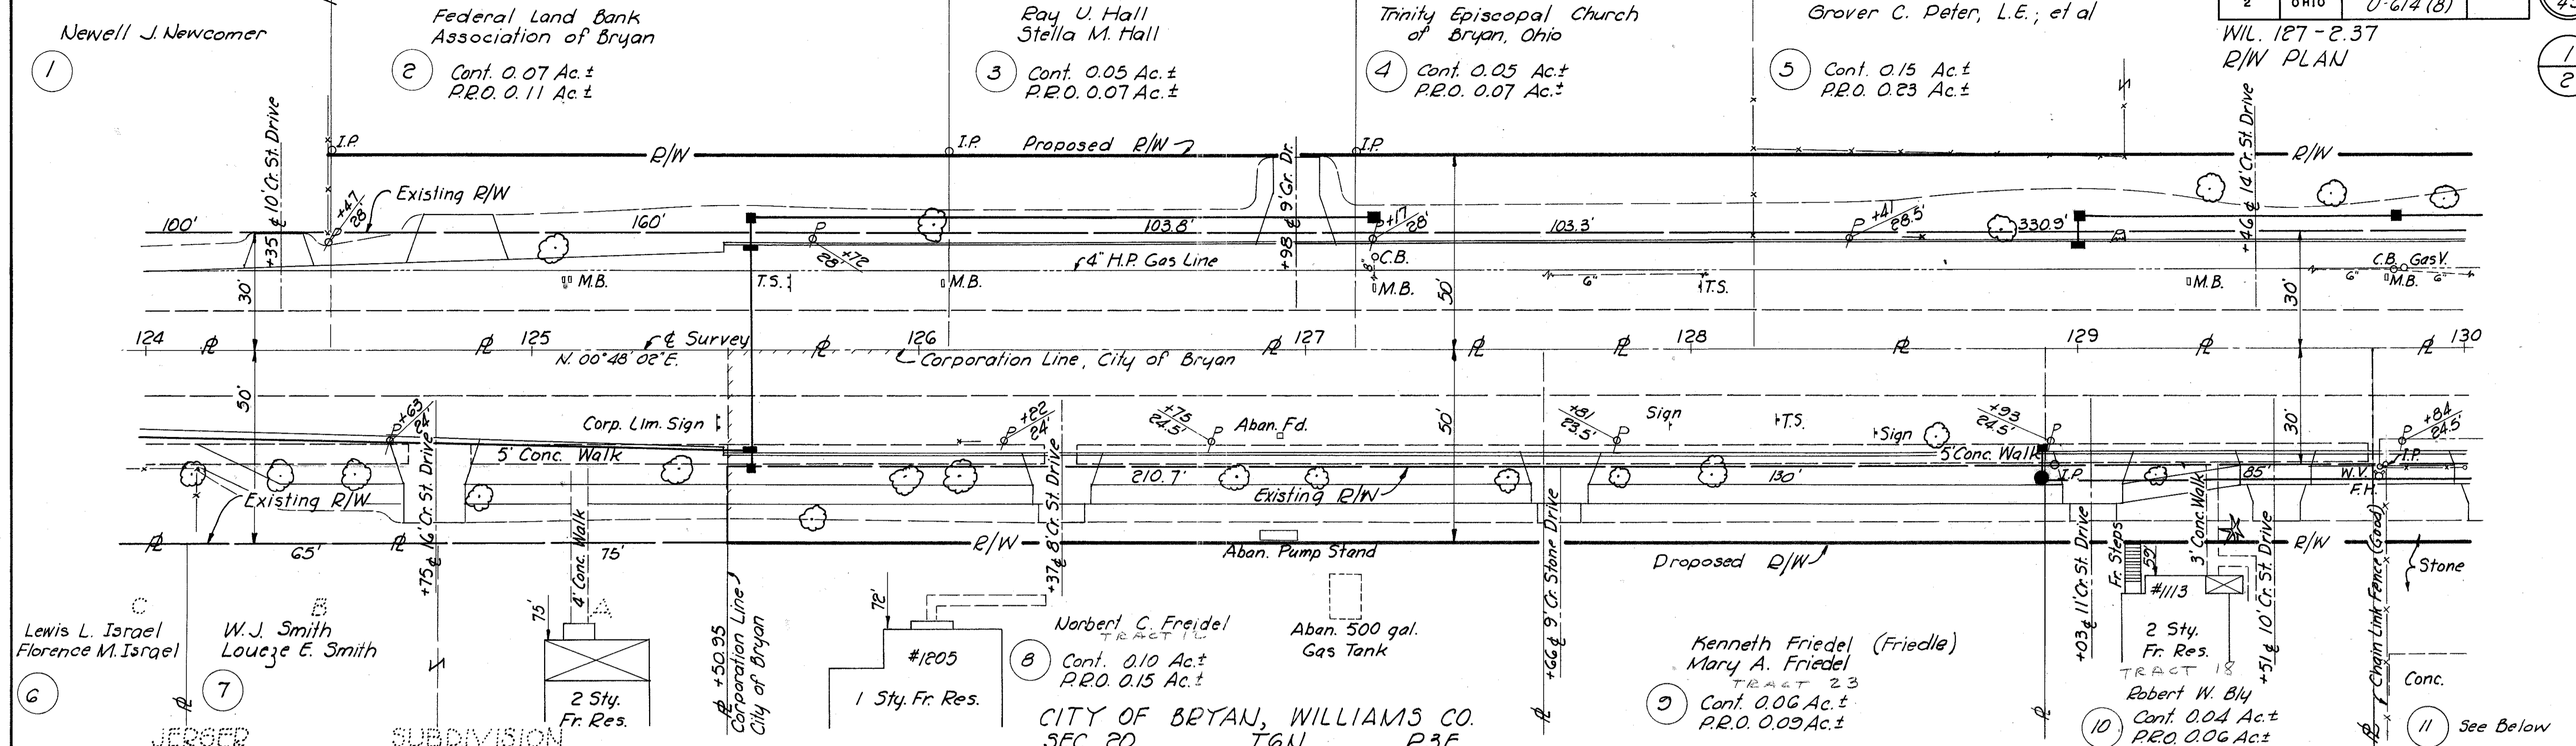 Newell J. Newcomer
1
Federal Land Bank
Association of Bryan
2
Cont. 0.07 Ac.±
P.R.O. 0.11 Ac.±
Ray U. Hall
Stella M. Hall
3
Cont. 0.05 Ac.±
P.R.O. 0.07 Ac.±
Trinity Episcopal Church
of Bryan, Ohio
4
Cont. 0.05 Ac.±
P.R.O. 0.07 Ac.±
Grover C. Peter, L.E.; et al
5
Cont. 0.15 Ac.±
P.R.O. 0.23 Ac.±
2 OHIO U-614 (8)
WIL. 127-2.37
R/W PLAN
1
2
+35 ℄ 10' Cr. St. Drive
I.P.
R/W
I.P.
Proposed R/W
+98 ℄ 9' Gr. Dr.
I.P.
+46 ℄ 14' Cr. St. Drive
R/W
100'
+47
28
Existing R/W
160'
103.8'
P
+17
28'
103.3'
P
+41
28.5'
330.9'
P
+72
28
4" H.P. Gas Line
C.B.
8"
C.B. Gas V.
30'
M.B.
T.S.
M.B.
M.B.
50'
6"
T.S.
M.B.
30'
6"
M.B.
6"
124
125
126
127
128
129
130
℄ Survey
N. 00° 48' 02" E.
Corporation Line, City of Bryan
50'
P
+63
24'
Corp. Lim. Sign
P
+22
24'
+75
24.5'
P
Aban. Fd.
50'
+81
23.5'
P
Sign
T.S.
Sign
+93
24.5'
P
30'
P
+84
24.5'
5' Conc. Walk
5' Conc. Walk
I.P.
I.P.
Existing R/W
210.7'
Existing R/W
130'
85'
W.V.
F.H.
65'
+75 ℄ 16' Cr. St. Drive
75'
4' Conc. Walk
R/W
+37 ℄ 8' Cr. St. Drive
Aban. Pump Stand
+66 ℄ 9' Cr. Stone Drive
Proposed R/W
+03 ℄ 11' Cr. St. Drive
Fr. Steps
59'
3' Conc. Walk
+51 ℄ 10' Cr. St. Drive
R/W
Chain Link Fence (Good)
Stone
C
B
A
Lewis L. Israel
Florence M. Israel
6
W. J. Smith
Loueze E. Smith
7
75'
2 Sty.
Fr. Res.
+50.95
Corporation Line
City of Bryan
72'
#1205
1 Sty. Fr. Res.
Norbert C. Freidel
8
Cont. 0.10 Ac.±
P.R.O. 0.15 Ac.±
Aban. 500 gal.
Gas Tank
Kenneth Friedel (Friedle)
Mary A. Friedel
TRACT 23
9
Cont. 0.06 Ac.±
P.R.O. 0.09 Ac.±
#1113
2 Sty.
Fr. Res.
TRACT 18
Robert W. Bly
10
Cont. 0.04 Ac.±
P.R.O. 0.06 Ac.±
Conc.
11
See Below
JERSER SUBDIVISION
CITY OF BRYAN, WILLIAMS CO.
SEC. 20 T6N R3E